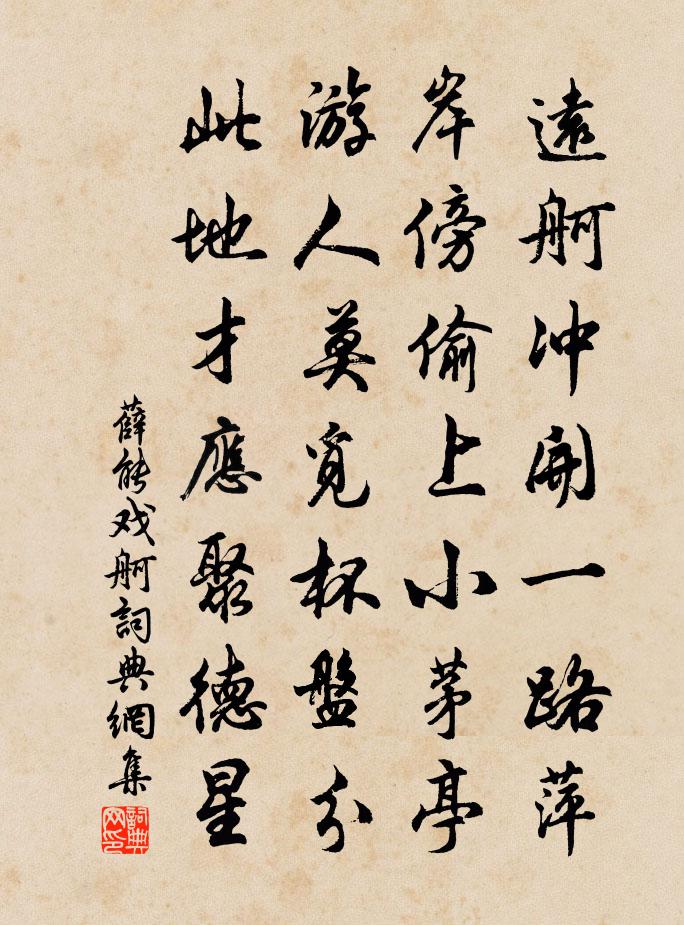 遠舸冲開一路萍
岸傍偷上小茅亭
游人莫覓杯盤分
此地才應聚德星
薛能戏舸詞典網集
詞典網印